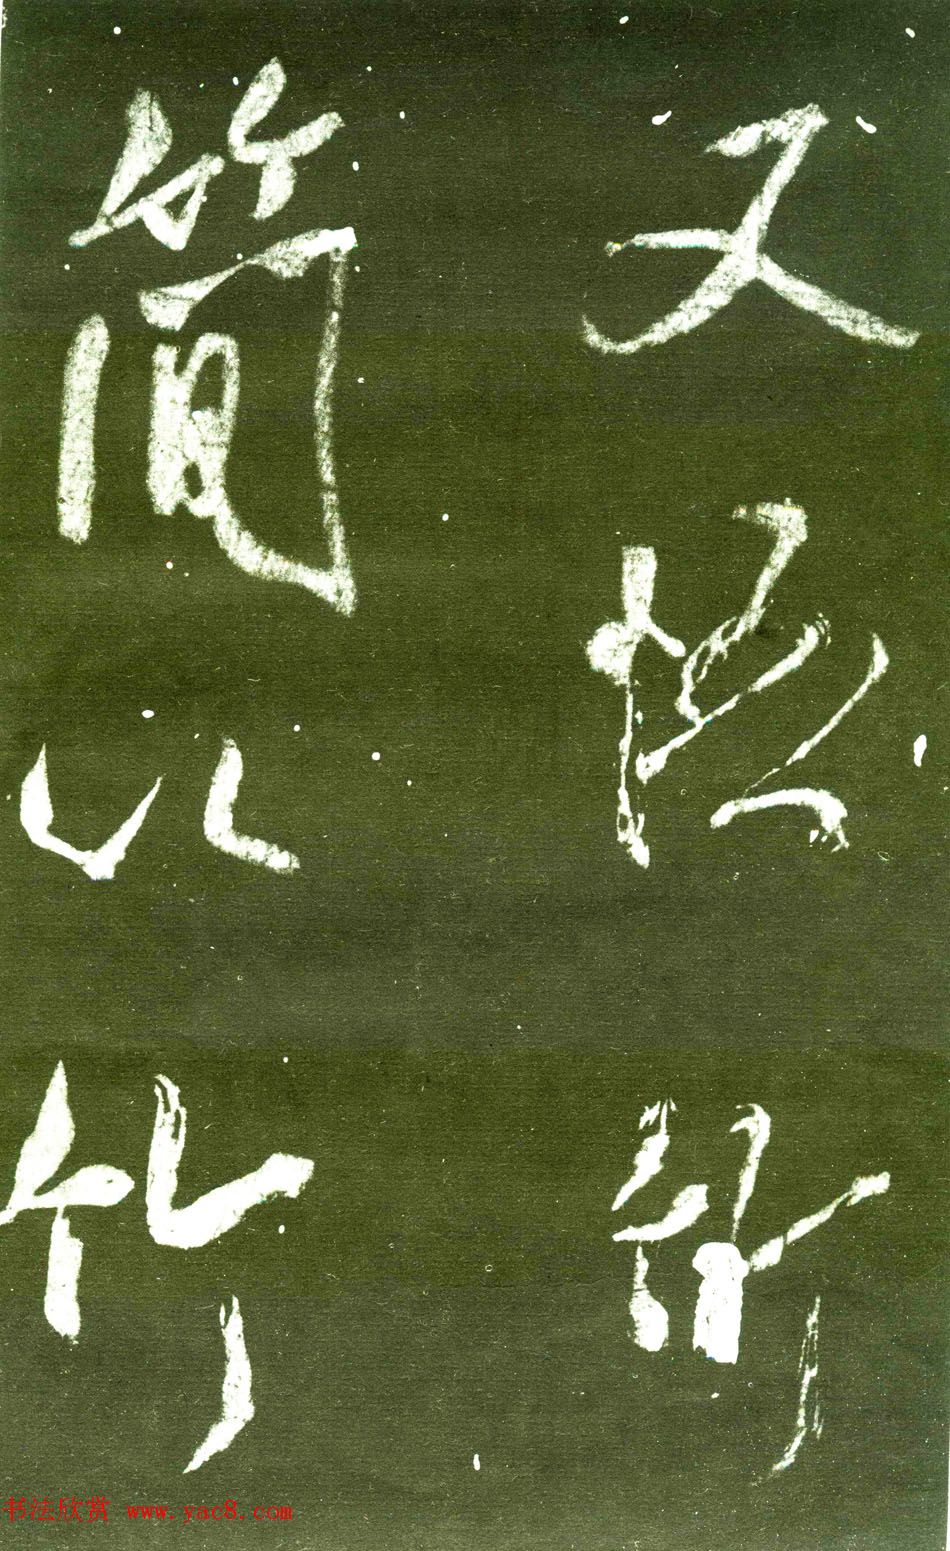 又恨竹
簡以竹
书法欣赏 www.yac8.com